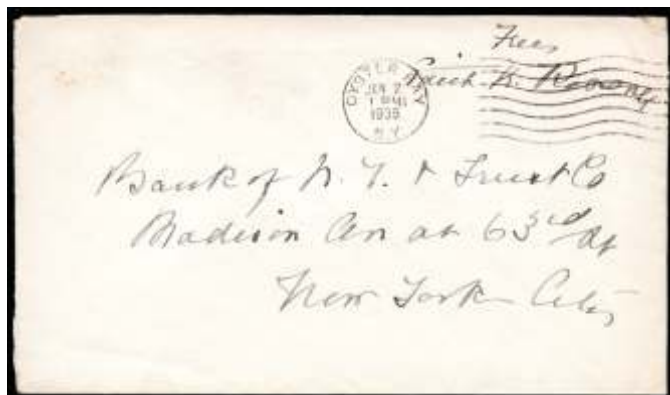 Free
Edith K. Roosevelt
OYSTER BAY
JAN 2
1 PM
1936
N.Y.
Bank of N. Y. & Trust Co
Madison Av at 63rd St
New York City